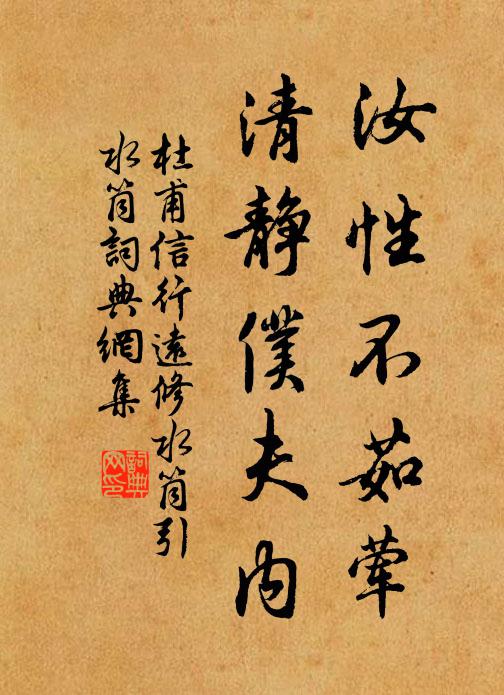 汝性不茹荤
清静僕夫内
杜甫信行遠修水筒引
水筒詞典網集
詞典网印